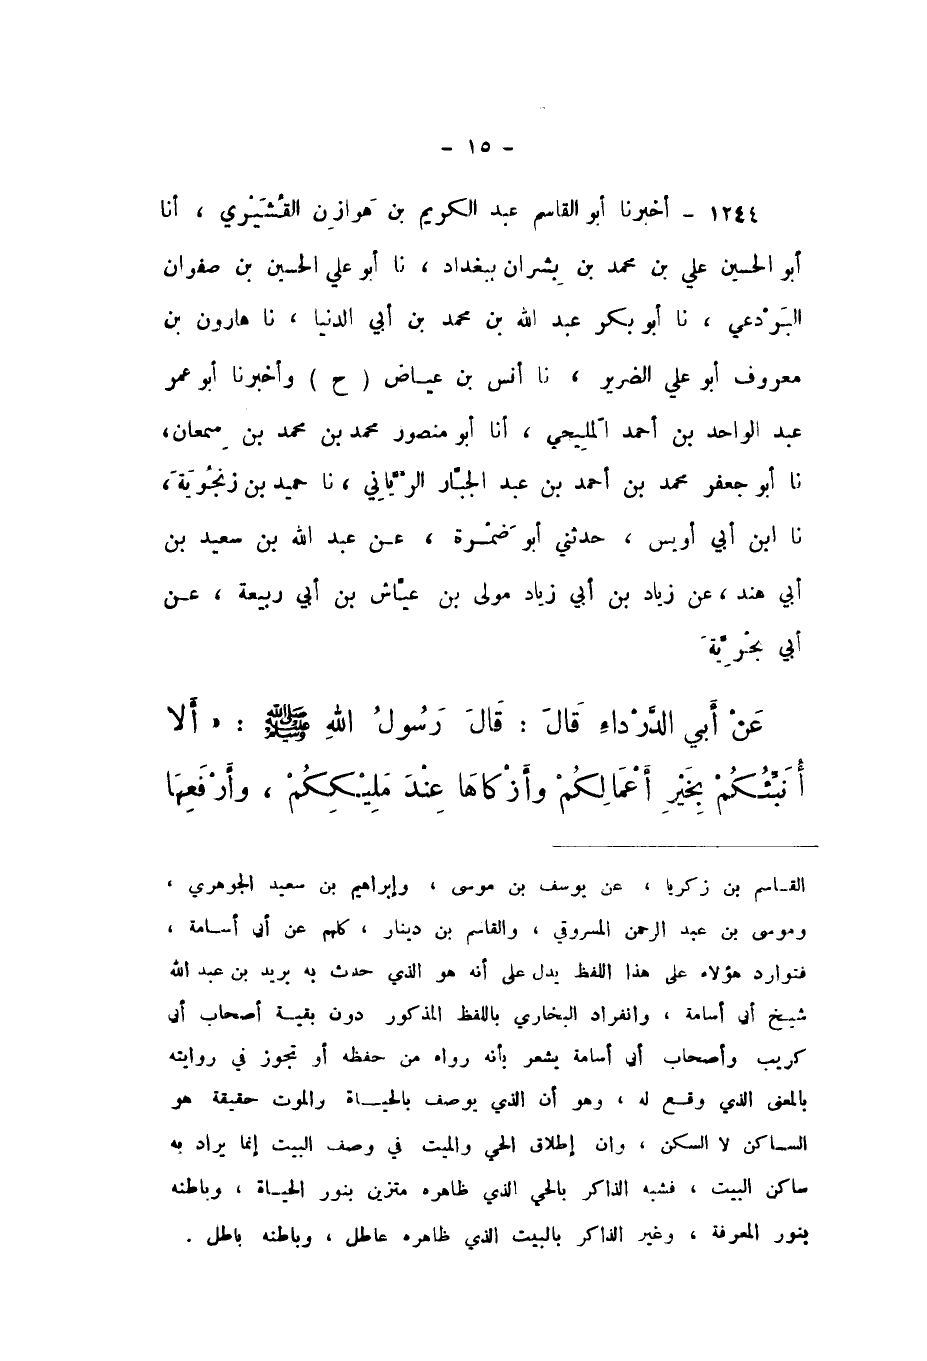 - ١٥ -
١٢٤٤ - أخبرنا أبو القاسم عبد الكريم بن هَوازِن القُشَيْري ، أنا
أبو الحسين علي بن محمد بن بِشران ببغداد ، نا أبو علي الحسين بن صفوان
البَرْدعي ، نا أبو بكر عبد الله بن محمد بن أبي الدنيا ، نا هارون بن
معروف أبو علي الضرير ، نا أنس بن عياض ( ح ) وأخبرنا أبو عمر
عبد الواحد بن أحمد المَلِيحي ، أنا أبو منصور محمد بن محمد بن سِمعان،
نا أبو جعفر محمد بن أحمد بن عبد الجبّار الرَّيّاني ، نا حميد بن زنجُويَة َ،
نا ابن أبي أويس ، حدثني أبو ضَمْرة ، عن عبد الله بن سعيد بن
أبي هند ، عن زياد بن أبي زياد مولى بن عيّاش بن أبي ربيعة ، عن
أبي بحْرِيَّة َ
عَنْ أَبي الدَّرْداءِ قَالَ : قَالَ رَسُولُ اللهِ ﷺ : « أَلا
أُنَبِّئُكُمْ بِخَيْرِ أَعْمَالِكُمْ وأَزْكاهَا عِنْدَ مَلِيْكِكُمْ ، وأَرْفَعِهَا
القاسم بن زكريا ، عن يوسف بن موسى ، وإبراهيم بن سعيد الجوهري ،
وموسى بن عبد الرحمن المسروقي ، والقاسم بن دينار ، كلهم عن أبي أسامة ،
فتوارد هؤلاء على هذا اللفظ يدل على أنه هو الذي حدث به بريد بن عبد الله
شيخ أبي أسامة ، وانفراد البخاري باللفظ المذكور دون بقية أصحاب أبي
كريب وأصحاب أبي أسامة يشعر بأنه رواه من حفظه أو تجوز في روايته
بالمعنى الذي وقع له ، وهو أن الذي يوصف بالحياة والموت حقيقة هو
الساكن لا السكن ، وان إطلاق الحي والميت في وصف البيت إنما يراد به
ساكن البيت ، فشبه الذاكر بالحي الذي ظاهره متزين بنور الحياة ، وباطنه
بنور المعرفة ، وغير الذاكر بالبيت الذي ظاهره عاطل ، وباطنه باطل .